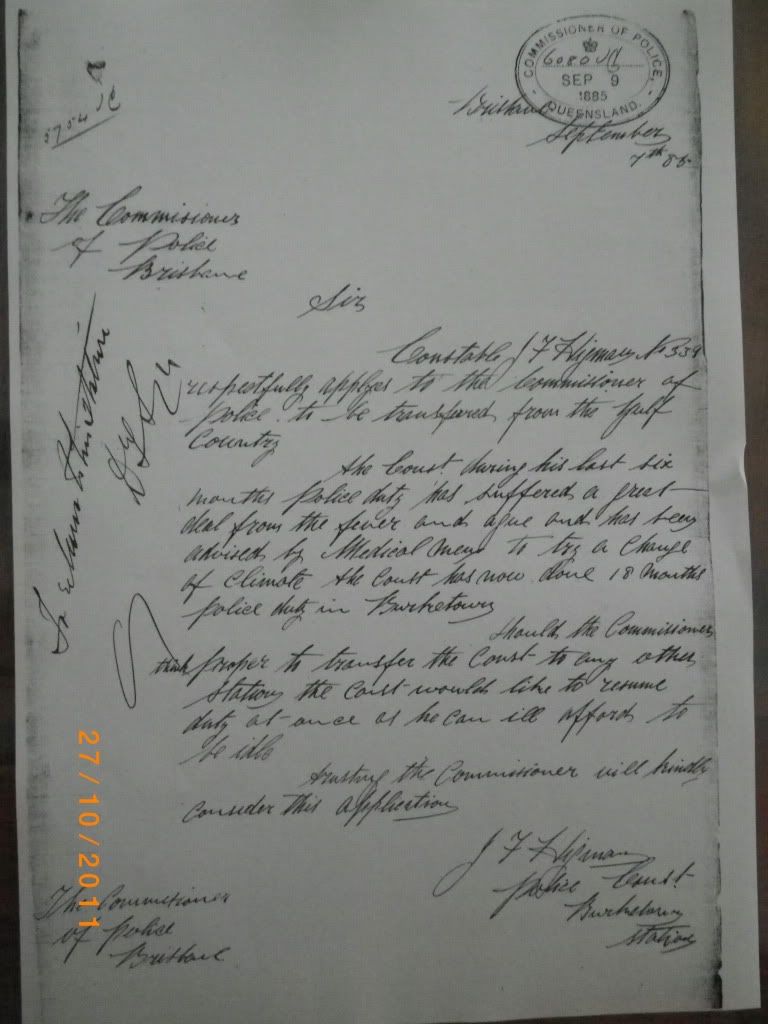 COMMISSIONER OF POLICE,
6080
SEP 9
1885
QUEENSLAND.
5754
Brisbane
September
7th 85
The Commissioner
of Police
Brisbane
Sir
Constable J F Higman No 339
respectfully applyes to the Commissioner of
Police. to be transfered from the Gulf
Country
the Const. during his last six
months Police duty has suffered a great
deal from the fever and ague and has been
advised by Medical Men to try a change
of climate the Const has now done 18 months
police duty in Burketown
should the Commissioner
think proper to transfer the Const to any other
station the Const would like to resume
duty at once as he can ill afford to
be idle
trusting the Commissioner will kindly
consider this application
J F Higman
Police Const.
Burketown
Station
The Commissioner
of Police
Brisbane
27/10/2011